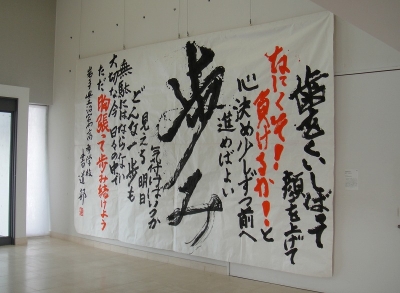 歯をくいしばって
顔を上げて
なにくそ!
負けるか!と
心決め少しずつ前へ
進めばよい
歩み
気付けばいつか
見える明日
どんな一歩も
無駄にはならない
大切な今日の中で
ただ胸張って歩み続けよう
書道部